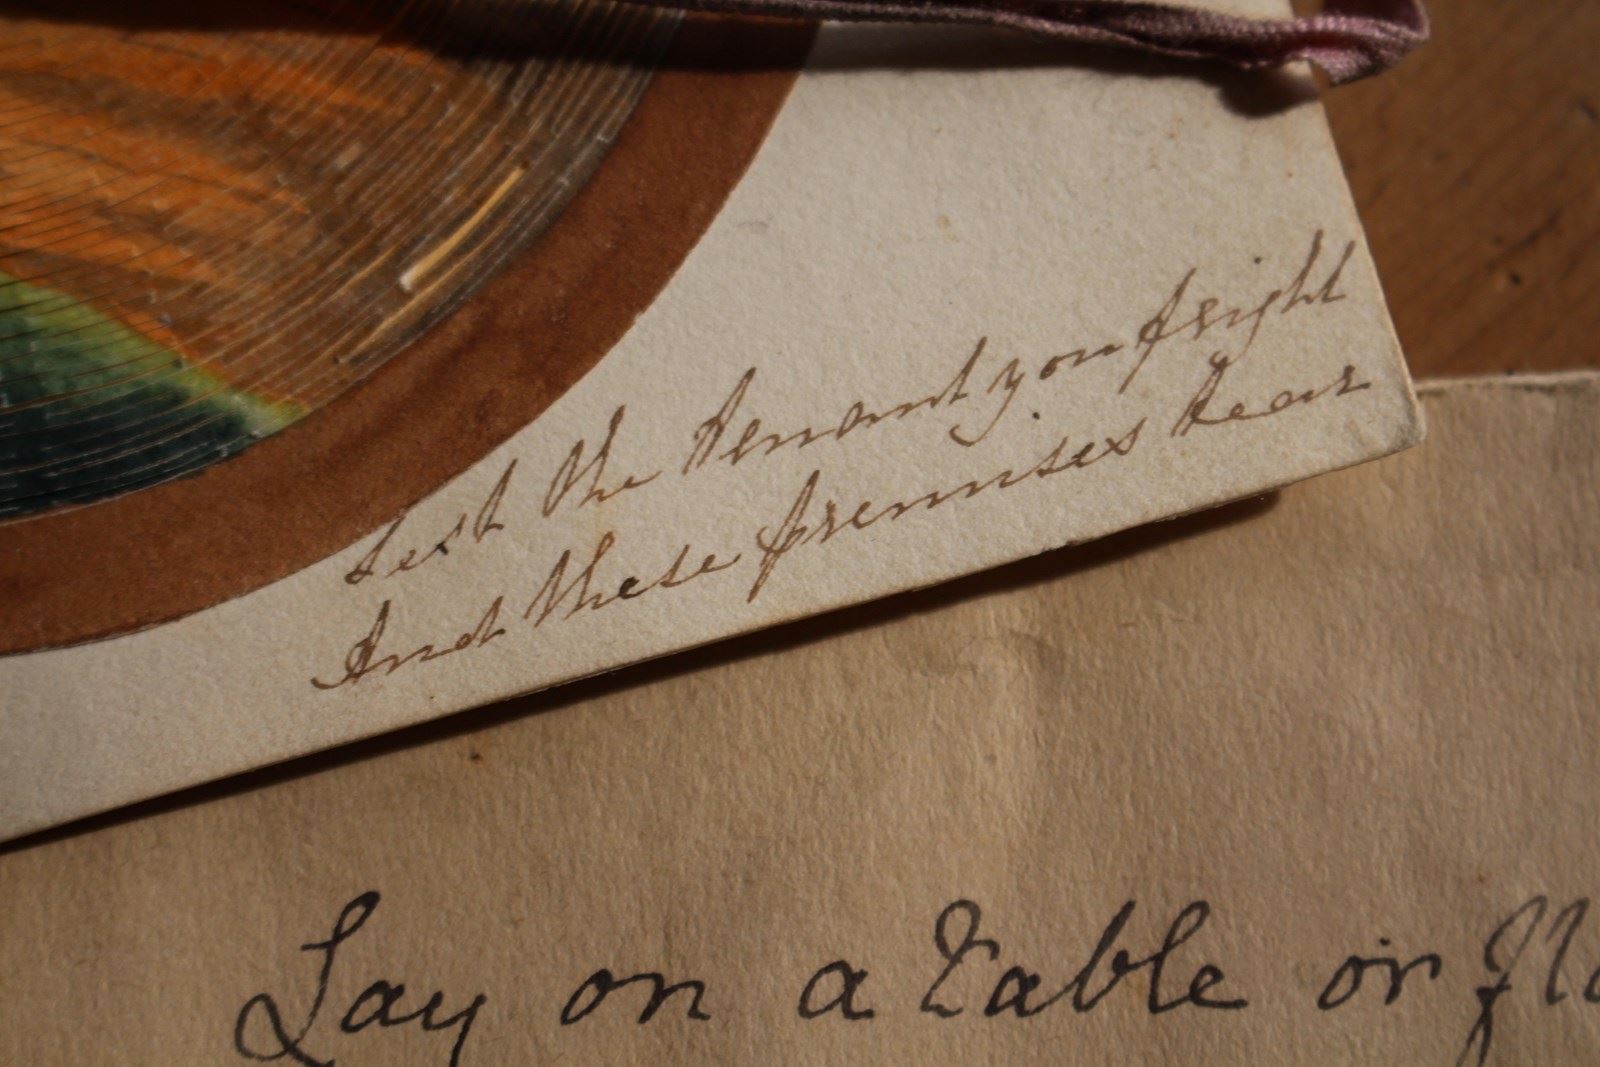 Lest the tenant you fright
And these premises tear
Lay on a Table or flo